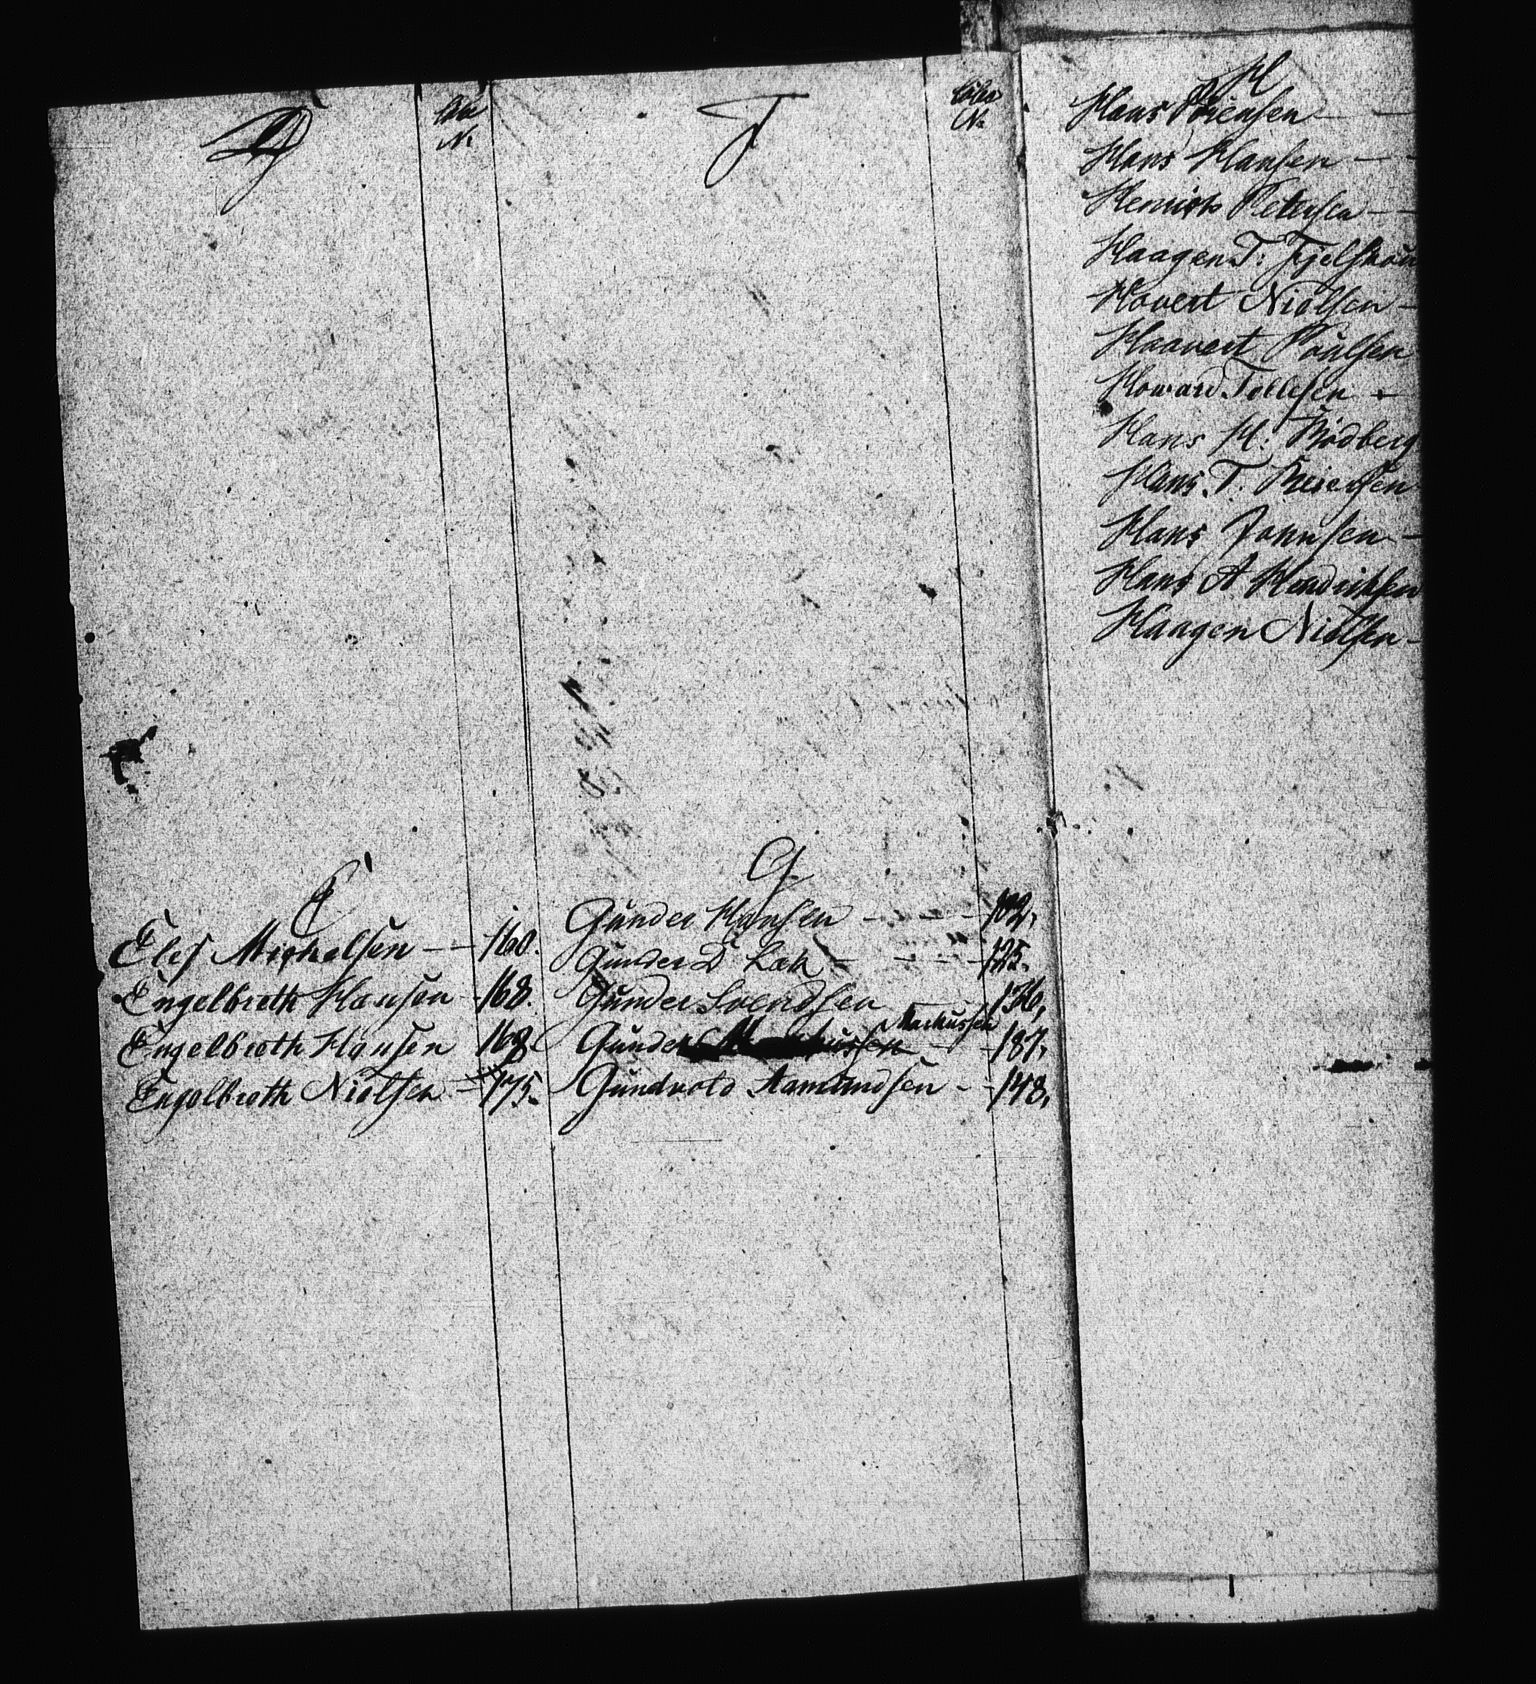 D
No
F
No
E
Elef Michelsen — 160.
Engelbreth Hansen 168.
Engelbreth Hansen 168
Engelbreth Nielsen — 175.
G
Gunder Hansen — — — 102,
Gunder D — — — 125.
Gunder Svendsen 136,
Markussen
Gunder — 187,
Gundvald Aamundsen — 148,
H
Hans
Hans Hansen — —
Henrich Petersen — —
Haagen T:
Hovert Nielsen —
Haavert Poulsen
Howard Tellefsen —
Hans H: Bødberg
Hans T:
Hans Johnsen —
Hans A Hendriksen
Haagen Nielsen —